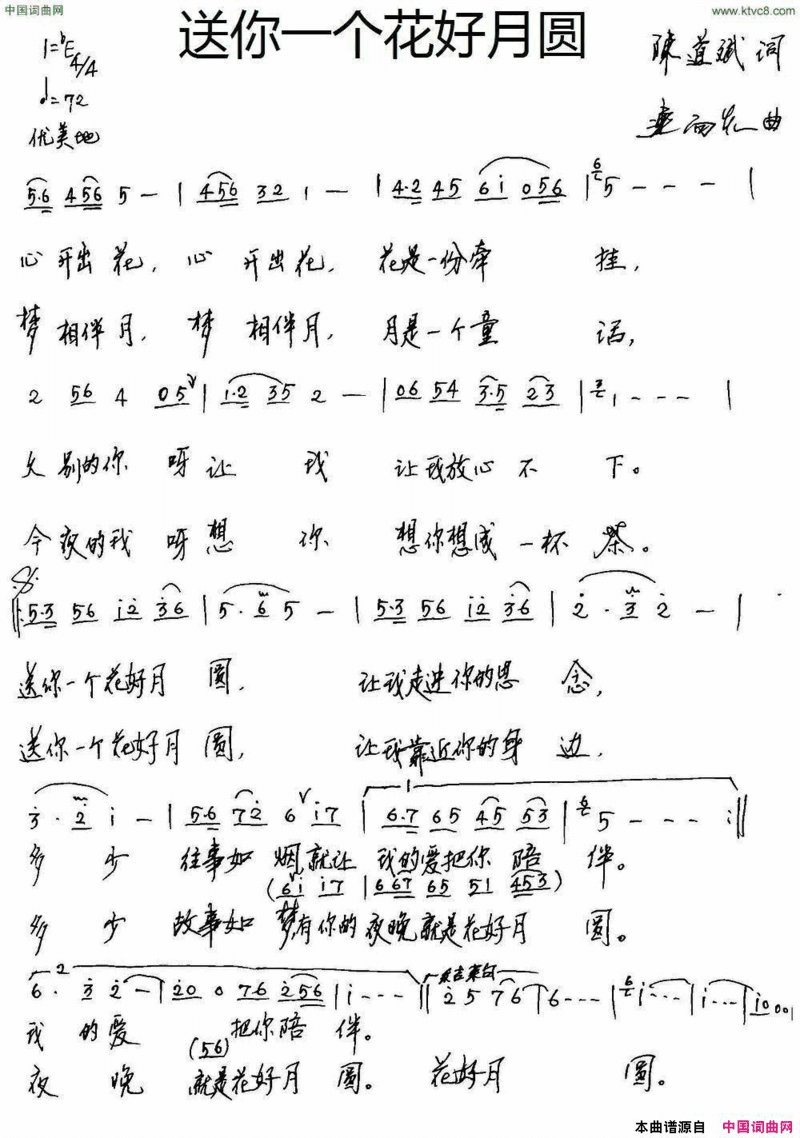 中国词曲网
www.ktvc8.com
送你一个花好月圆
1=♭E 4/4
♩=72
优美地
陈道斌 词
曲
5·6 456 5 - | 456 32 1 - | 4·2 45 6i 056 | 5 - - - |
心开出花，心开出花，花是一份牵挂，
梦相伴月，梦相伴月，月是一个童话，
2 56 4 05 | 1·2 35 2 - | 06 54 3·5 23 | 1 - - - |
久别的你呀让我让我放心不下。
今夜的我呀想你想你想成一杯茶。
5·3 56 i2 36 | 5· 6 5 - | 5·3 56 i2 36 | 2· 3 2 - |
送你一个花好月圆，让我走进你的思念，
送你一个花好月圆，让我靠近你的身边，
3· 2 i - | 5·6 72 6 i7 | 6·7 65 45 53 | 5 - - - :||
多少往事如烟就让我的爱把你陪伴。
(6i i7 | 667 65 51 453)
多少故事如梦有你的夜晚就是花好月圆。
6· 3 2 - | 20 0 76 256 | i - - - || 25 76 | 6 - - - | i - - - | i - - - | i000 ||
我的爱把你陪伴。
(56)
夜晚就是花好月圆。花好月圆。
本曲谱源自 中国词曲网